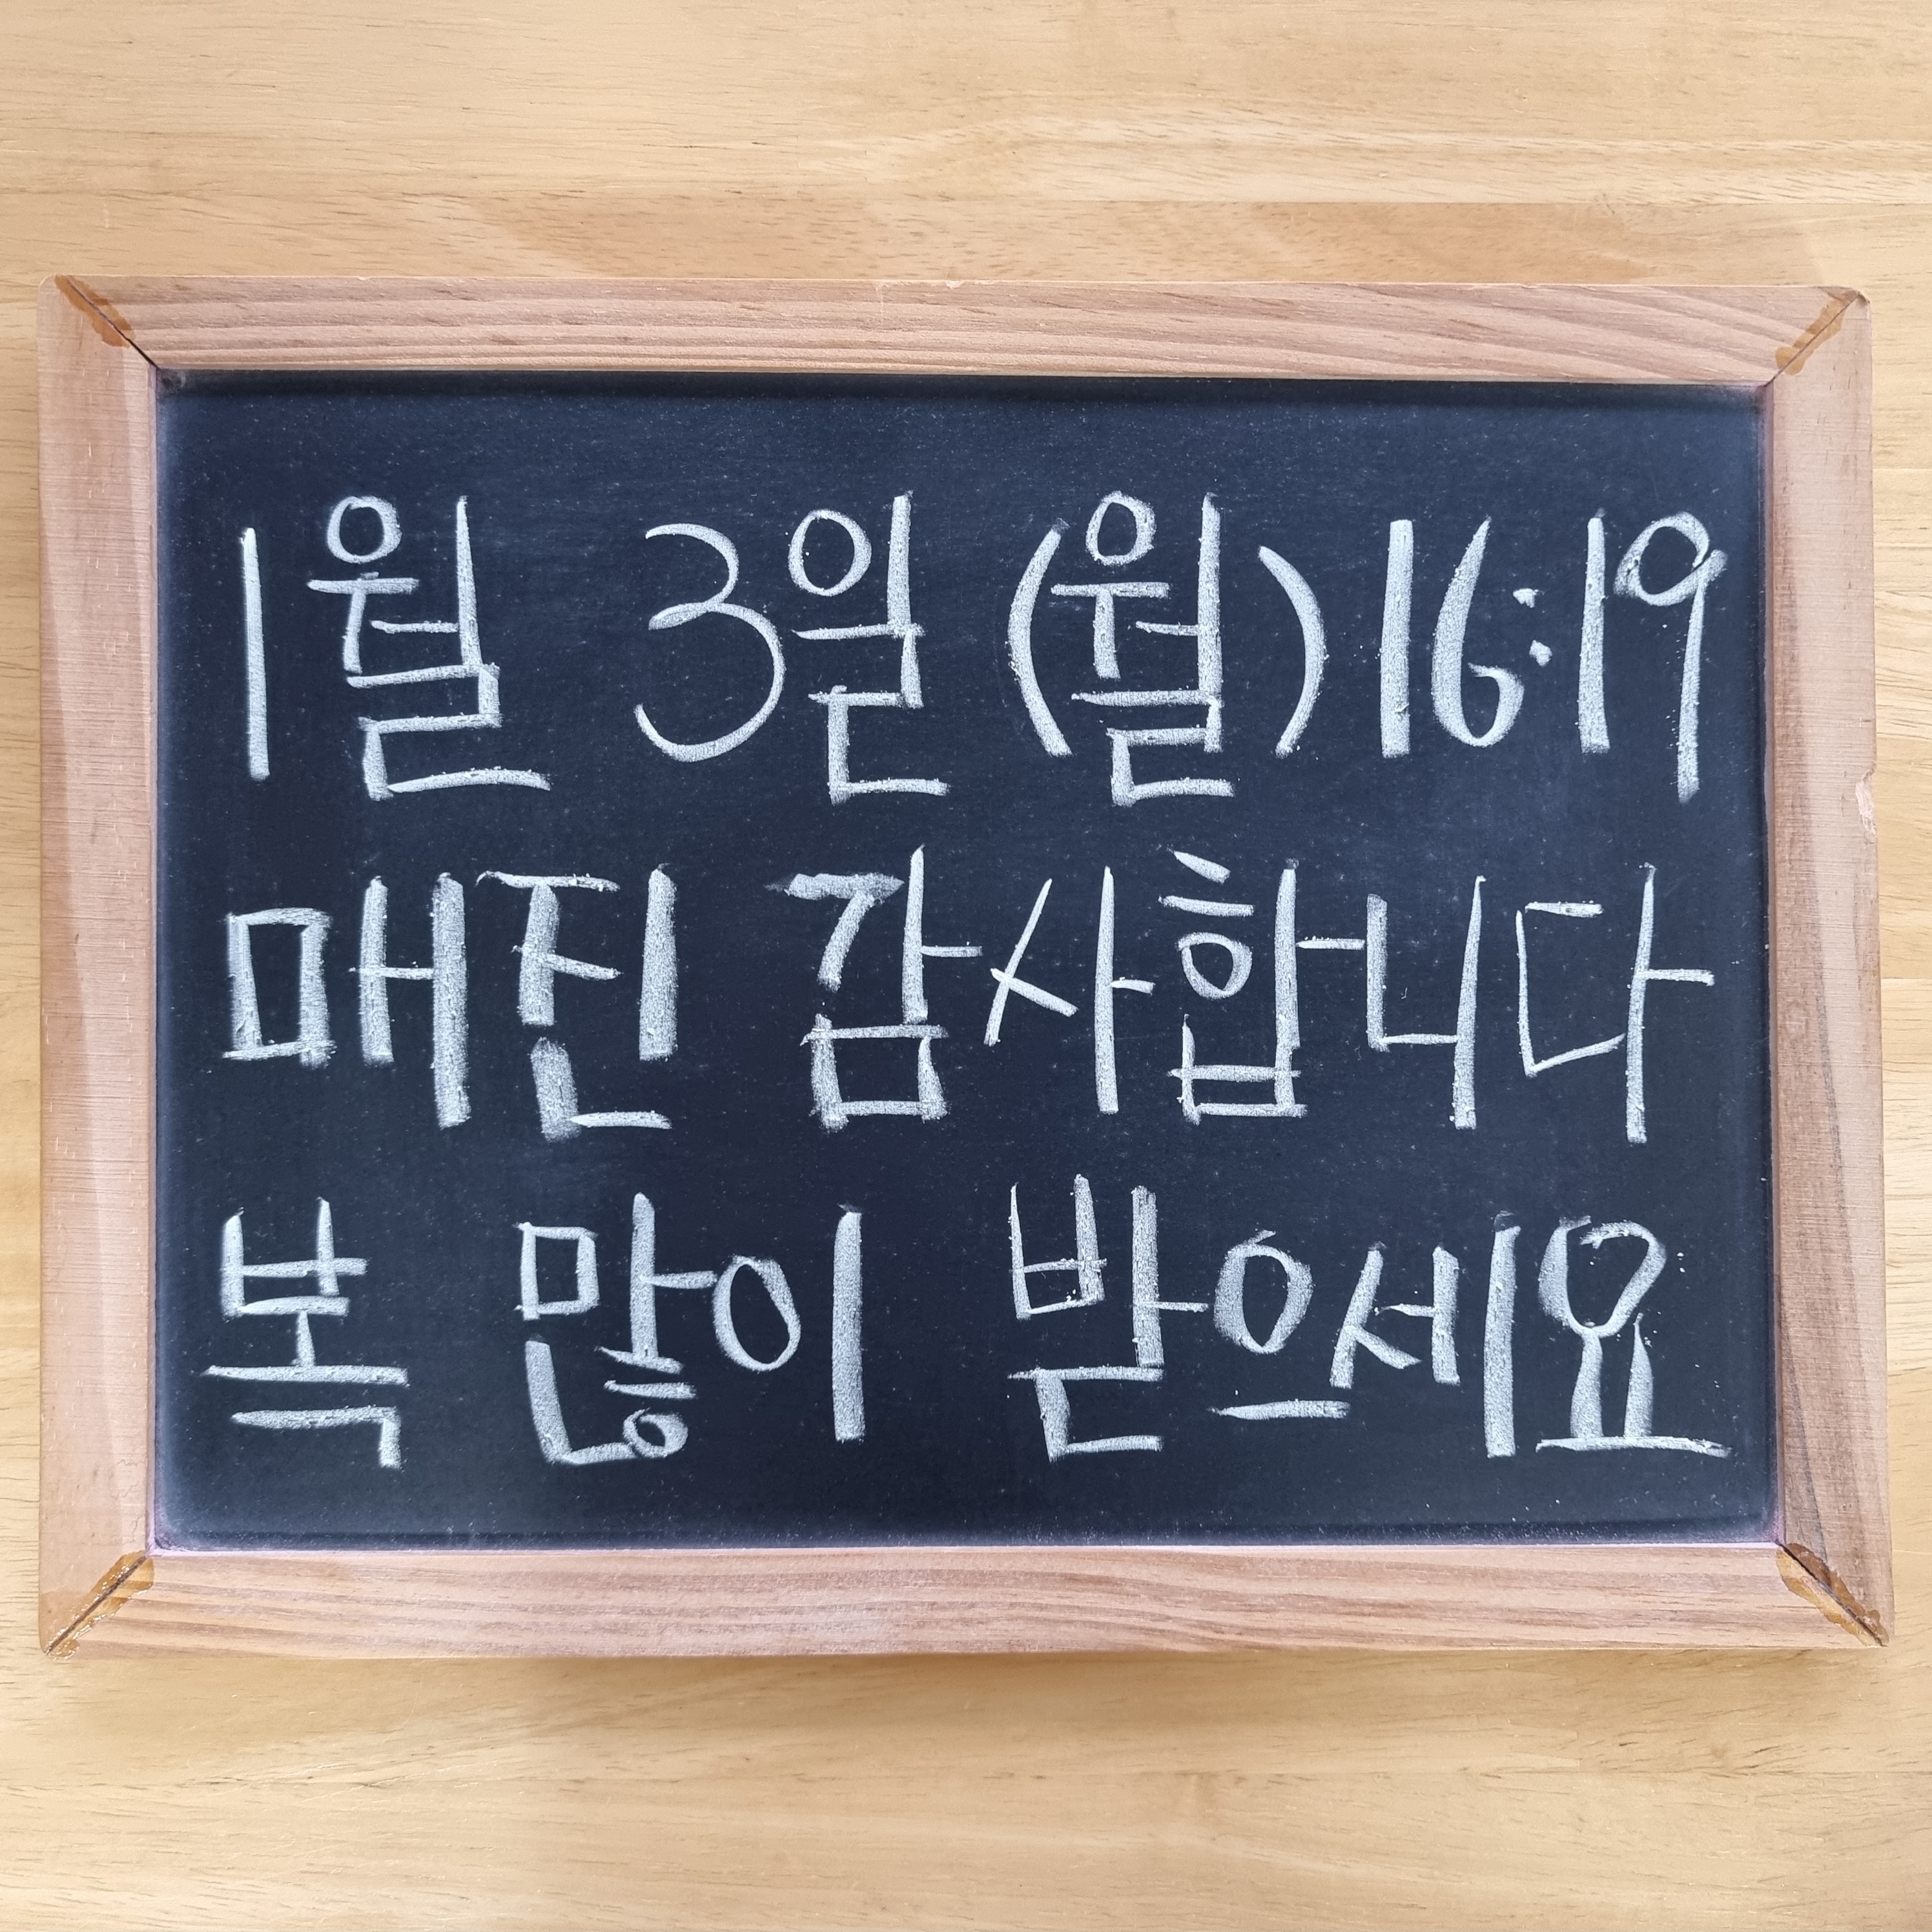 1월 3일 (월) 16:19
매진 감사합니다
복 많이 받으세요